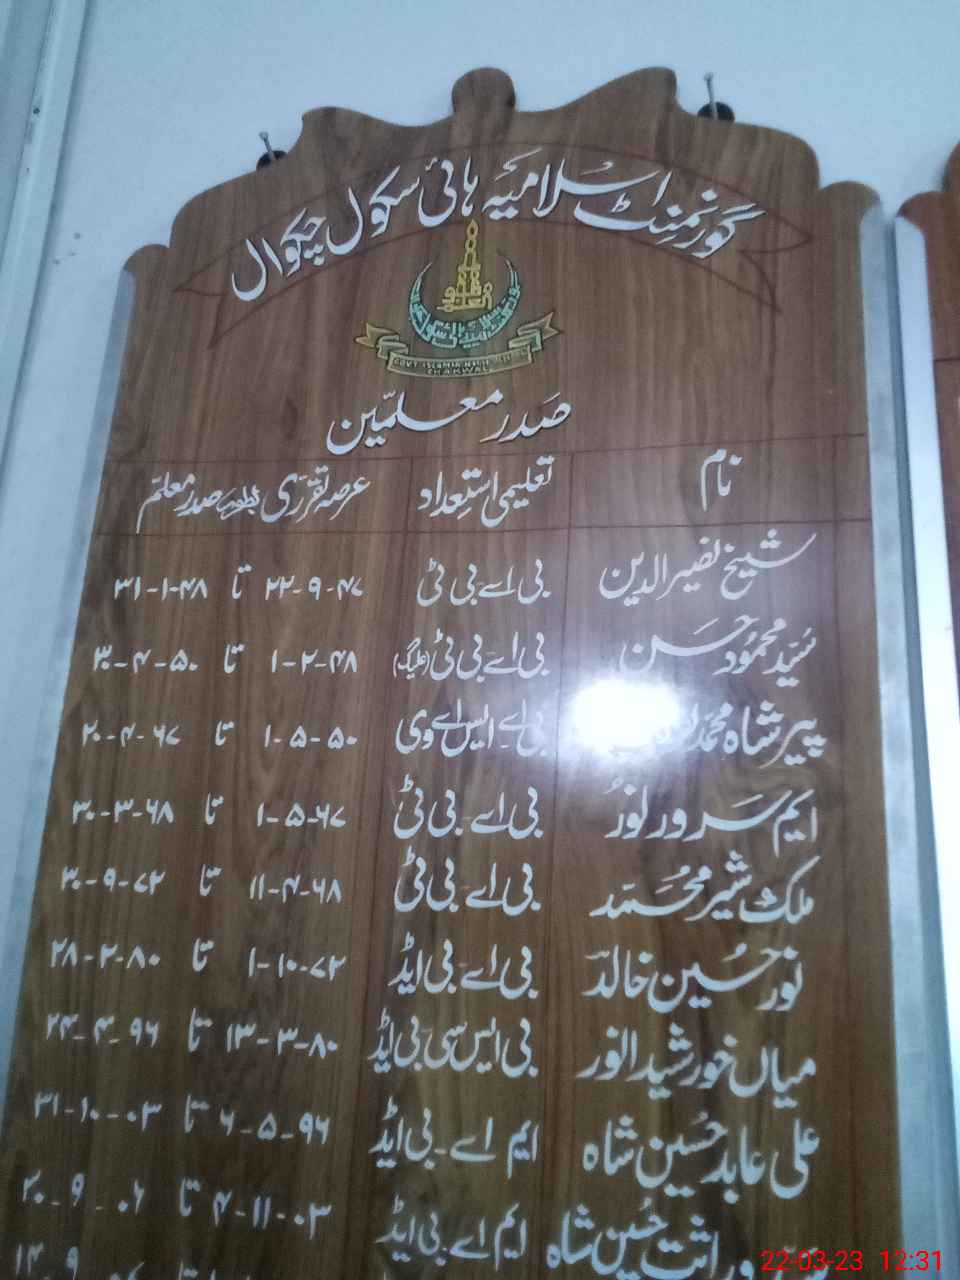 گورنمنٹ اسلامیہ ہائی سکول چکوال
GOVT ISLAMIA HIGH SCHOOL
CHAKWAL
صدر معلمین
نام تعلیمی استعداد عرصہ تقرری بطور صدر معلم
شیخ نصیر الدین بی اے بی ٹی ۲۲-۹-۴۷ تا ۳۱-۱-۴۸
سید محمود حسن بی اے بی ٹی (علیگ) ۱-۲-۴۸ تا ۳۰-۴-۵۰
پیر شاہ محمد بی اے۔ایس اے وی ۱-۵-۵۰ تا ۲۰-۴-۶۷
ایم سرور نور بی اے۔بی ٹی ۱-۵-۶۷ تا ۳۰-۳-۶۸
ملک شیر محمد بی اے بی ٹی ۱۱-۴-۶۸ تا ۳۰-۹-۷۲
نور حسین خالد بی اے۔بی ایڈ ۱-۱۰-۷۲ تا ۲۸-۲-۸۰
میاں خورشید انور بی ایس سی بی ایڈ ۱۳-۳-۸۰ تا ۲۴-۴-۹۶
علی عابد حسین شاہ ایم اے۔بی ایڈ ۶-۵-۹۶ تا ۳۱-۱۰-۰۳
حسین شاہ ایم اے۔بی ایڈ ۴-۱۱-۰۳ تا ۲۰-۹-۰۶
22-03-23 12:31